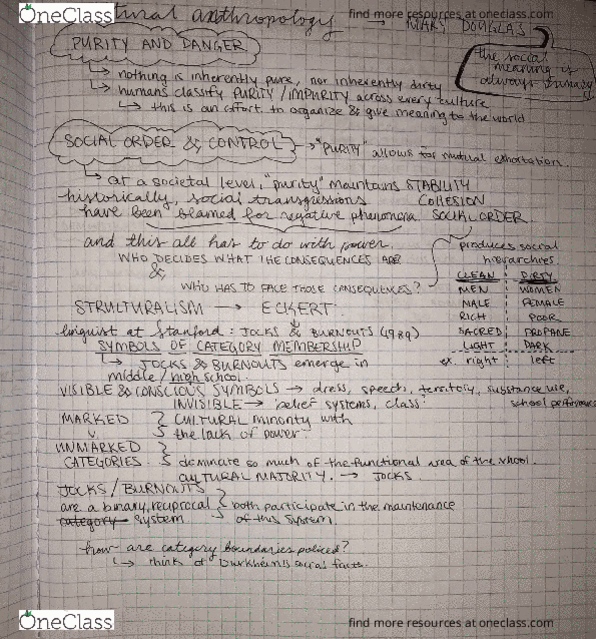 OneClass
find more resources at oneclass.com
cultural anthropology → MARY DOUGLAS
PURITY AND DANGER
the social meaning is always primary
↳ nothing is inherently pure, nor inherently dirty
↳ humans classify PURITY / IMPURITY across every culture
↳ this is an effort to organize & give meaning to the world
SOCIAL ORDER & CONTROL → "PURITY" allows for mutual exhortation.
↳ at a societal level, "purity" maintains STABILITY
historically, social transgressions COHESION
have been blamed for negative phenomena. SOCIAL ORDER.
and this all has to do with power.
WHO DECIDES WHAT THE CONSEQUENCES ARE
&
WHO HAS TO FACE THOSE CONSEQUENCES?
produces social
hierarchies.
CLEAN DIRTY
MEN WOMEN
MALE FEMALE
RICH POOR
SACRED PROPANE
LIGHT DARK
ex. right left
STRUCTURALISM → ECKERT
linguist at Stanford: JOCKS & BURNOUTS (1989)
SYMBOLS OF CATEGORY MEMBERSHIP
↳ JOCKS & BURNOUTS emerge in
middle / high school.
VISIBLE & CONSCIOUS SYMBOLS → dress, speech, territory, substance use,
school performance
INVISIBLE → belief systems, class.
MARKED } CULTURAL minority with
v. the lack of power
UNMARKED
CATEGORIES. } dominate so much of the functional area of the school.
CULTURAL MAJORITY. → JOCKS.
JOCKS / BURNOUTS
are a binary, reciprocal } both participate in the maintenance
category system of this system.
how are category boundaries policed?
↳ think of Durkheim's social facts.
OneClass
find more resources at oneclass.com